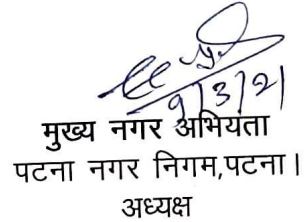 9/3/21
मुख्य नगर अभियंता
पटना नगर निगम,पटना।
अध्यक्ष